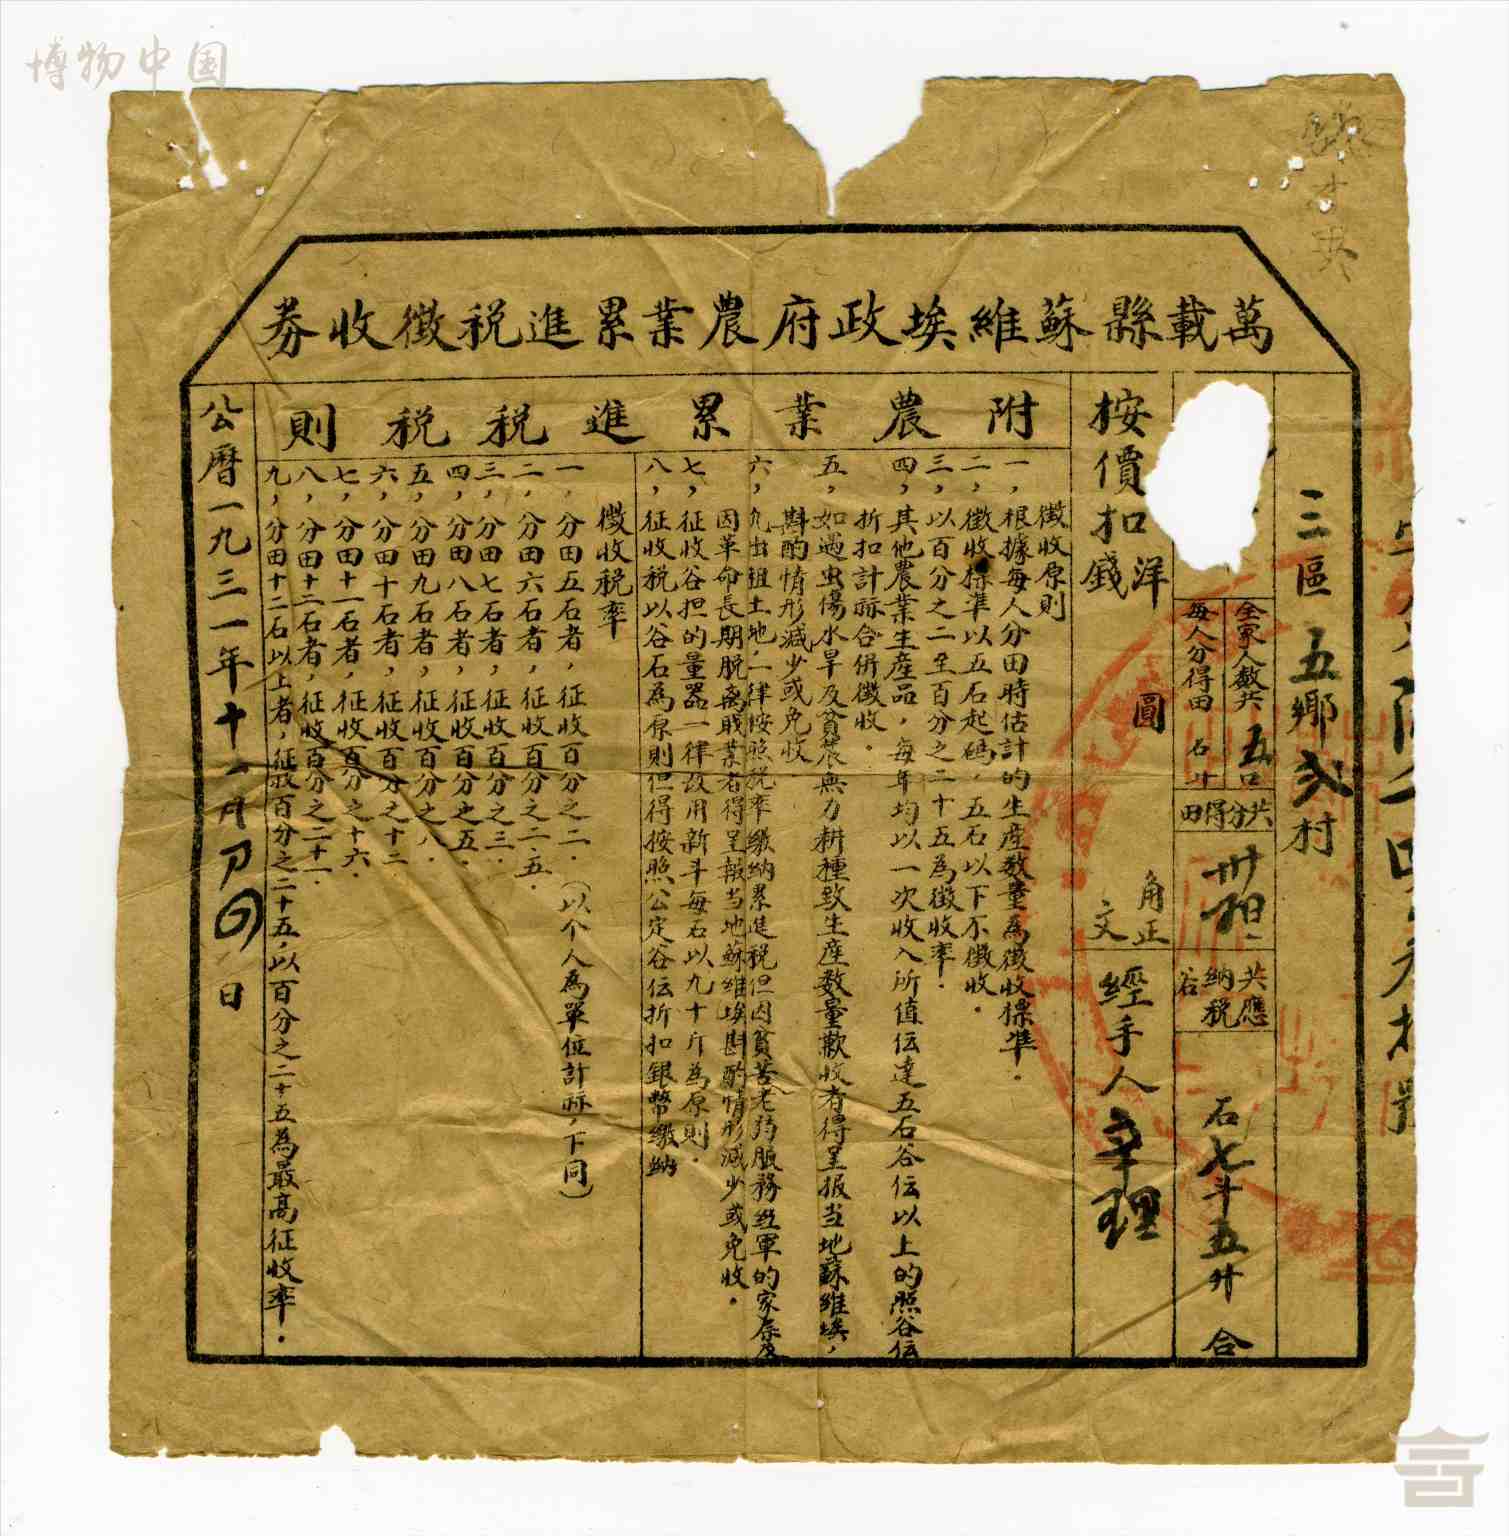 博物中国
萬載縣蘇維埃政府農業累進税徵收券
三區五鄉弐村
全家人數共五口
每人分得田 石 斗
共分得田
共應納税谷
石七斗五升 合
按價扣洋 圓 角正
錢 文
經手人
附農業累進税税則
徵收原則
一，根據每人分田時估計的生產數量為徵收標準．
二，徵收標準以五石起碼，五石以下不徵收．
三，以百分之二至百分之二十五為徵收率．
四，其他農業生產品，每年均以一次收入所值伝達五石谷伝以上的照谷伝
折扣計祘合併徵收．
五，如遇虫傷水旱及貧農無力耕種致生産数量歉收者得呈报当地蘇維埃，
斟酌情形減少或免收．
六，凡出租土地，一律按照税率繳納累進税但因貧苦老弱服務紅軍的家屬及
因革命長期脱离職業者得呈報当地蘇維埃斟酌情形減少或免收．
七，征收谷担的量器一律改用新斗每石以九十斤為原則．
八，征收税以谷石為原則但得按照公定谷伝折扣銀幣繳納
徵收税率
一．分田五石者，征收百分之二．（以个人為單位計祘，下同）
二．分田六石者，征收百分之二．五．
三，分田七石者，征收百分之三．
四，分田八石者，征收百分之五．
五，分田九石者，征收百分之八．
六，分田十石者，征收百分之十二
七，分田十一石者，征收百分之十六．
八，分田十二石者，征收百分之二十一．
九，分田十二石以上者，征收百分之二十五，以百分之二十五為最高征收率．
公曆一九三一年十一月 日